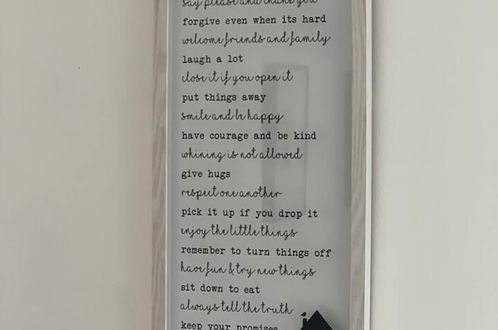 say please and thank you
forgive even when its hard
welcome friends and family
laugh a lot
close it if you open it
put things away
smile and be happy
have courage and be kind
whining is not allowed
give hugs
respect one another
pick it up if you drop it
enjoy the little things
remember to turn things off
have fun & try new things
sit down to eat
always tell the truth
keep your promises